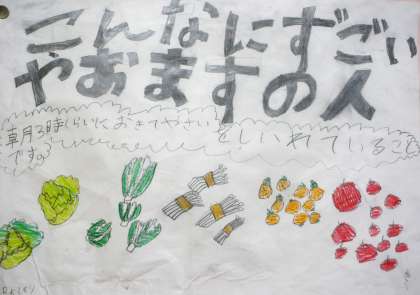 こんなにすごい
やおますの人
朝月3時くらいにおきてやさい
をしいれていること
です。